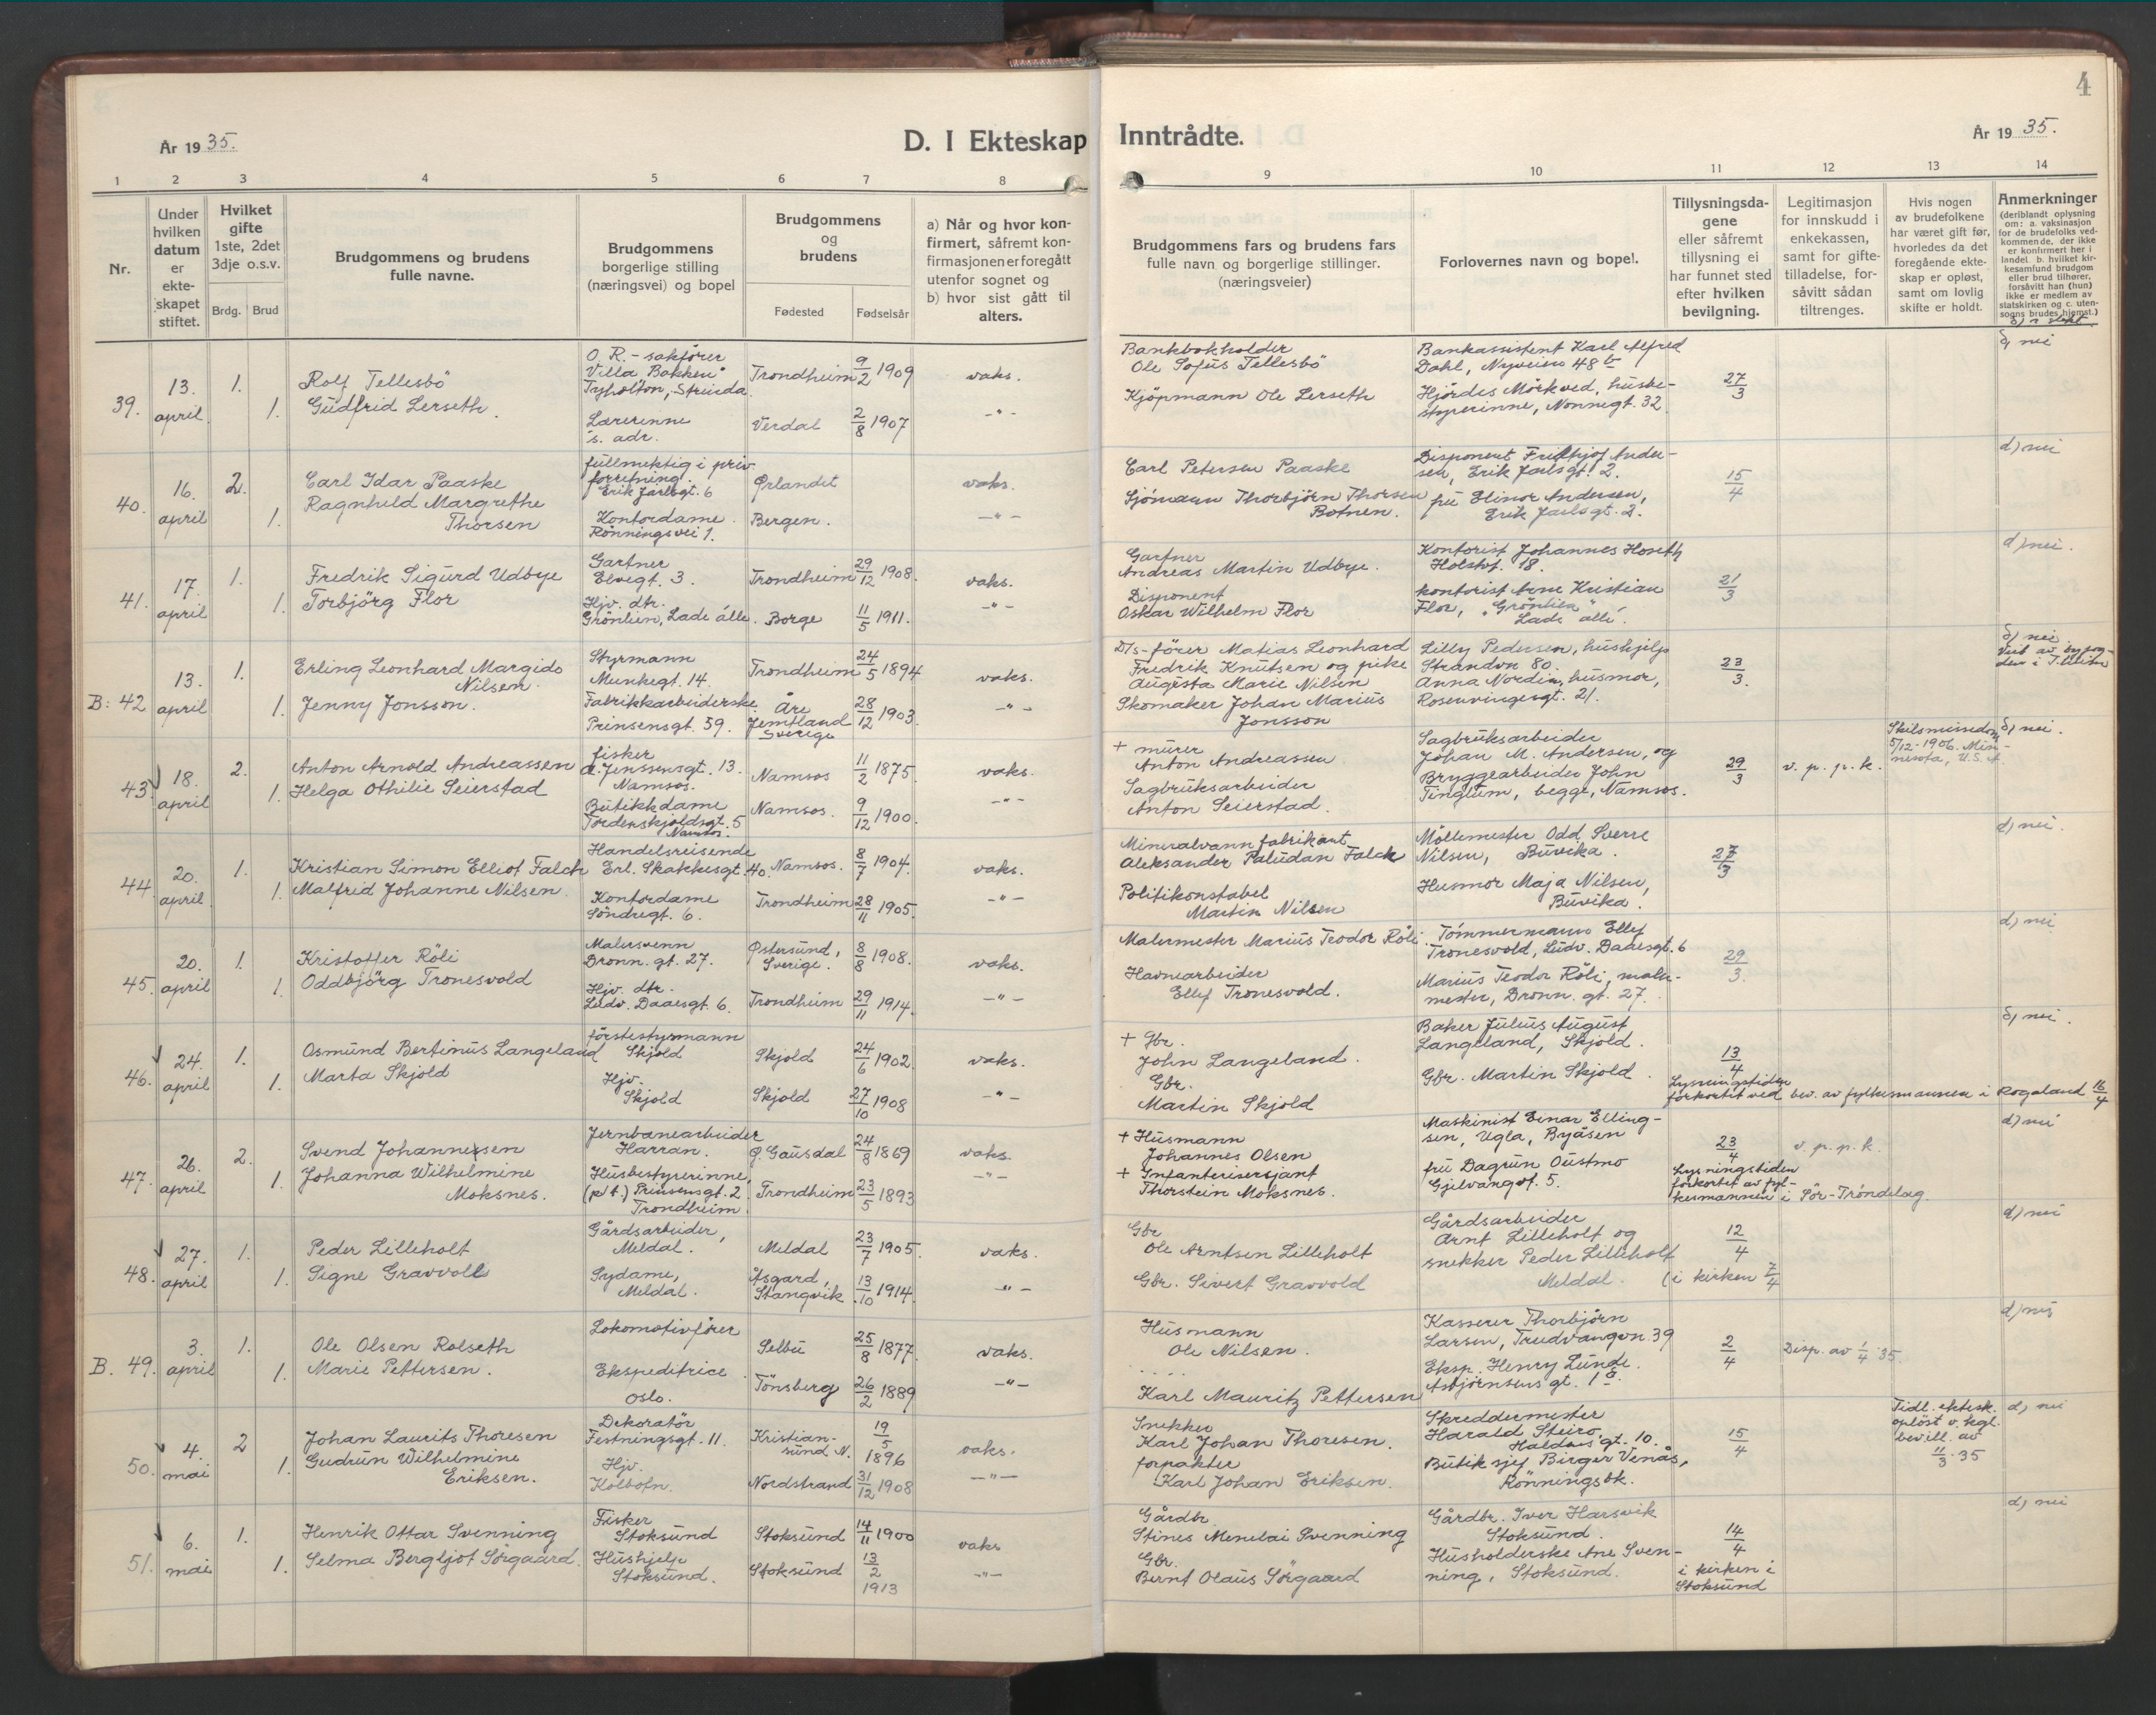 4
År 1935.
D. I Ekteskap Inntrådte.
År 1935.
1 2 3 4 5 6 7 8 9 10 11 12 13 14
Nr.
Under hvilken datum er ekte-skapet stiftet.
Hvilket gifte 1ste, 2det 3dje o.s.v.
Brdg. Brud
Brudgommens og brudens fulle navne.
Brudgommens borgerlige stilling (næringsvei) og bopel
Brudgommens og brudens
Fødested Fødselsår
a) Når og hvor kon-firmert, såfremt kon-firmasjonen er foregått utenfor sognet og b) hvor sist gått til alters.
Brudgommens fars og brudens fars fulle navn og borgerlige stillinger. (næringsveier)
Forlovernes navn og bopel.
Tillysningsda-gene eller såfremt tillysning ei har funnet sted efter hvilken bevilgning.
Legitimasjon for innskudd i enkekassen, samt for gifte-tilladelse, for-såvitt sådan tiltrenges.
Hvis nogen av brudefolkene har været gift før, hvorledes da det foregående ekte-skap er opløst, samt om lovlig skifte er holdt.
Anmerkninger (deriblandt oplysning om: a. vaksinasjon for de brudefolks ved-kommende, der ikke er konfirmert her i landet. b. hvilket kir-kesamfund brudgom eller brud tilhører, forsåvitt han (hun) ikke er medlem av statskirken og c. uten-sogns brudes hjemst.)
39. 13. april 1. 1.
Rolf Tellesbö
Gudfrid Lerseth.
O. R. - sakförer
"Villa Bakken"
Tyholtvn, Strinda.
Lærerinne
s. adr.
Trondheim 9/2 1909
Verdal 2/8 1907
vaks.
-"-
Bankbokholder
Ole Sofus Tellesbö
Kjöpmann Ole Lerseth
Bankassistent Karl Alfred
Dahl, Nyveien 48 b
Hjördis Mörkved, husbe-
styrerinne, Nonnegt. 32
27/3
d) nei
40. 16. april 2. 1.
Carl Idar Paaske
Ragnhild Margrethe
Thorsen
fullmektig i priv.
forretning.
Erik Jarlsgt. 6
Kontordame.
Rönningsvei 1.
Ørlandet
Bergen.
vaks.
-"-
Carl Petersen Paaske
Sjömann Thorbjörn Thorsen
Botnen.
Disponent Fridthjof Ander-
sen, Erik Jarlsgt. 2.
fru Elinor Andersen,
Erik Jarlsgt. 2.
15/4
d) nei
41. 17. april 1. 1.
Fredrik Sigurd Udbye
Torbjörg Flor
Gartner
Elvegt. 3.
Hjv. dtr.
Grönlien, Lade allé.
Trondheim 29/12 1908.
Borge 11/5 1911.
vaks.
-"-
Gartner
Andreas Martin Udbye.
Disponent
Oskar Wilhelm Flor
Kontorist Johannes Hoseth
Holstvt. 18.
kontorist Arne Kristian
Flor, "Grönlien"
Lade allé.
21/3
d) nei.
B: 42 13. april 1. 1.
Erling Leonhard Margido
Nilsen.
Jenny Jonsson.
Styrmann
Munkegt. 14.
Fabrikkarbeiderske
Prinsensgt. 59.
Trondheim 24/5 1894
Åre
Jemtland
Sverige 28/12 1903.
vaks.
-"-
D/s-förer Matias Leonhard
Fredrik Knutsen og pike
Augusta Marie Nilsen
Skomaker Johan Marius
Jonsson
Lilly Pedersen, hushjelp
Strandvn 80.
Anna Nordin, husmor,
Rosenvingesgt. 21.
23/3.
d) nei
Viet av byfog-
den i T.heim
43. 18. april 2. 1.
Anton Arnold Andreassen
Helga Othilie Seierstad
fisker
A. Jenssensgt. 13.
Namsos.
Butikkdame
Tordenskjoldsgt. 5
Namsos.
Namsos 11/2 1875.
Namsos. 9/12 1900.
vaks.
-"-
+ murer
Anton Andreassen
Sagbruksarbeider
Anton Seierstad.
Sagbruksarbeider
Johan M. Andersen, og
Bryggearbeider John
Tinglum, begge, Namsos.
29/3
v. p. p. k.
Skilsmissedom
5/12-1906. Min-
nesota, U.S.A
d) nei.
44. 20. april. 1. 1.
Kristian Simon Elliot Falch
Malfrid Johanne Nilsen.
Handelsreisende
Erl. Skakkesgt. 40.
Kontordame
Söndregt. 6.
Namsos. 8/7 1904.
Trondheim 28/11 1905.
vaks.
-"-
Mineralvannfabrikant
Aleksander Paludan Falch
Politikonstabel
Martin Nilsen
Möllemester Odd Sverre
Nilsen, Buvika.
Husmor Maja Nilsen,
Buvika.
27/3
d) nei.
45. 20. april 1. 1.
Kristoffer Röli
Oddbjörg Tronesvold
Malersvenn
Dronn. gt. 27.
Hjv. dtr.
Ludv. Daaesgt. 6.
Østersund,
Sverige. 8/8 1908.
Trondheim 29/11 1914.
vaks.
-"-
Malermester Marius Teodor Röli.
Havnearbeider
Ellef Tronesvold.
Tömmermann Ellef
Tronesvold, Ludv. Daaesgt. 6
Marius Teodor Röli, maler-
mester, Dronn. gt. 27.
29/3.
d) nei
46. 24. april 1. 1.
Osmund Bertinus Langeland
Marta Skjold
förstestyrmann
Skjold
Hjv.
Skjold
Skjold 24/6 1902
Skjold 27/10 1908
vaks.
-"-
+ Gbr.
John Langeland.
Gbr.
Martin Skjold
Baker Julius August
Langeland, Skjold.
Gbr. Martin Skjold.
13/4
Lysningstiden
forkortet ved bev. av fylkesmannen i Rogaland 16/4
d) nei.
47. 26. april 2. 1.
Svend Johannessen
Johanna Wilhelmine
Moksnes.
Jernbanearbeider
Harran.
Husbestyrerinne,
(p.t.) Prinsensgt. 2
Trondheim
Ø. Gausdal 24/8 1869
Trondheim 23/5 1893
vaks.
-"-
+ Husmann
Johannes Olsen
+ Infanterisersjant
Thorstein Moksnes.
Maskinist Einar Elling-
sen, Ugla, Byåsen
fru Dagrun Oustmo
Gjelvangvt. 5.
23/4
v. p. p. k.
Lysningstiden
forkortet av fyl-
kesmannen i Sör-Tröndelag.
d) nei
48. 27. april 1. 1.
Peder Lilleholt
Signe Gravvold
Gårdsarbeider,
Meldal.
Sydame,
Meldal.
Meldal 23/7 1905.
Åsgard,
Stangvik 13/10 1914.
vaks.
-"-
Gbr
Ole Arntsen Lilleholt
Gbr. Sivert Gravvold
Gårdsarbeider
Arnt Lilleholt og
snekker Peder Lilleholt
Meldal.
12/4
(i kirken 7/4
d) nei
B. 49. 3. april 1. 1.
Ole Olsen Rolseth
Marie Pettersen.
Lokomotivförer
Ekspeditrice
Oslo.
Selbu 25/8 1877.
Tönsberg 26/2 1889
vaks.
-"-
Husmann
Ole Nilsen.
.....
Karl Mauritz Pettersen
Kasserer Thorbjörn
Larsen, Trudvangvn. 39
Eksp. Henry Lunde.
Asbjörnsens gt. 1 c.
2/4
Disp. av 1/4 35
d) nei
50. 4. mai 2 1.
Johan Laurits Thoresen
Gudrun Wilhelmine
Eriksen.
Dekoratör
Festningsgt. 11.
Hjv.
Kolbotn.
Kristian-
sund N. 19/5 1896
Nordstrand 31/12 1908
vaks.
-"-
Snekker
Karl Johan Thoresen.
forpakter
Karl Johan Eriksen.
Skreddermester
Harald Steiro,
Haldens gt. 10.
Butiksjef Birger Venås,
Rönningsbk.
15/4
Tidl. ektesk.
oplöst v. kgl.
bevill. av
11/3 35
d) nei
51. 6. mai 1. 1.
Henrik Ottar Svenning
Selma Bergljot Sörgaard.
Fisker
Stoksund
Hushjelp
Stoksund.
Stoksund 14/11 1900
Stoksund 13/2 1913
vaks
-"-
Gårdbr.
Stines Menelai Svenning
Gbr.
Bernt Olaus Sörgaard
Gårdbr. Iver Harsvik
Stoksund.
Husholderske Ane Sven-
ning, Stoksund.
14/4
i kirken i
Stoksund
d) nei